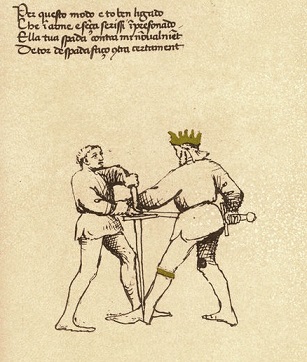 Per questo modo e to ben ligado
Che i arme e seça serissi ipresonado
Ella tua spada contra mi noual niet
De tor de spada faço ꝯtra certament